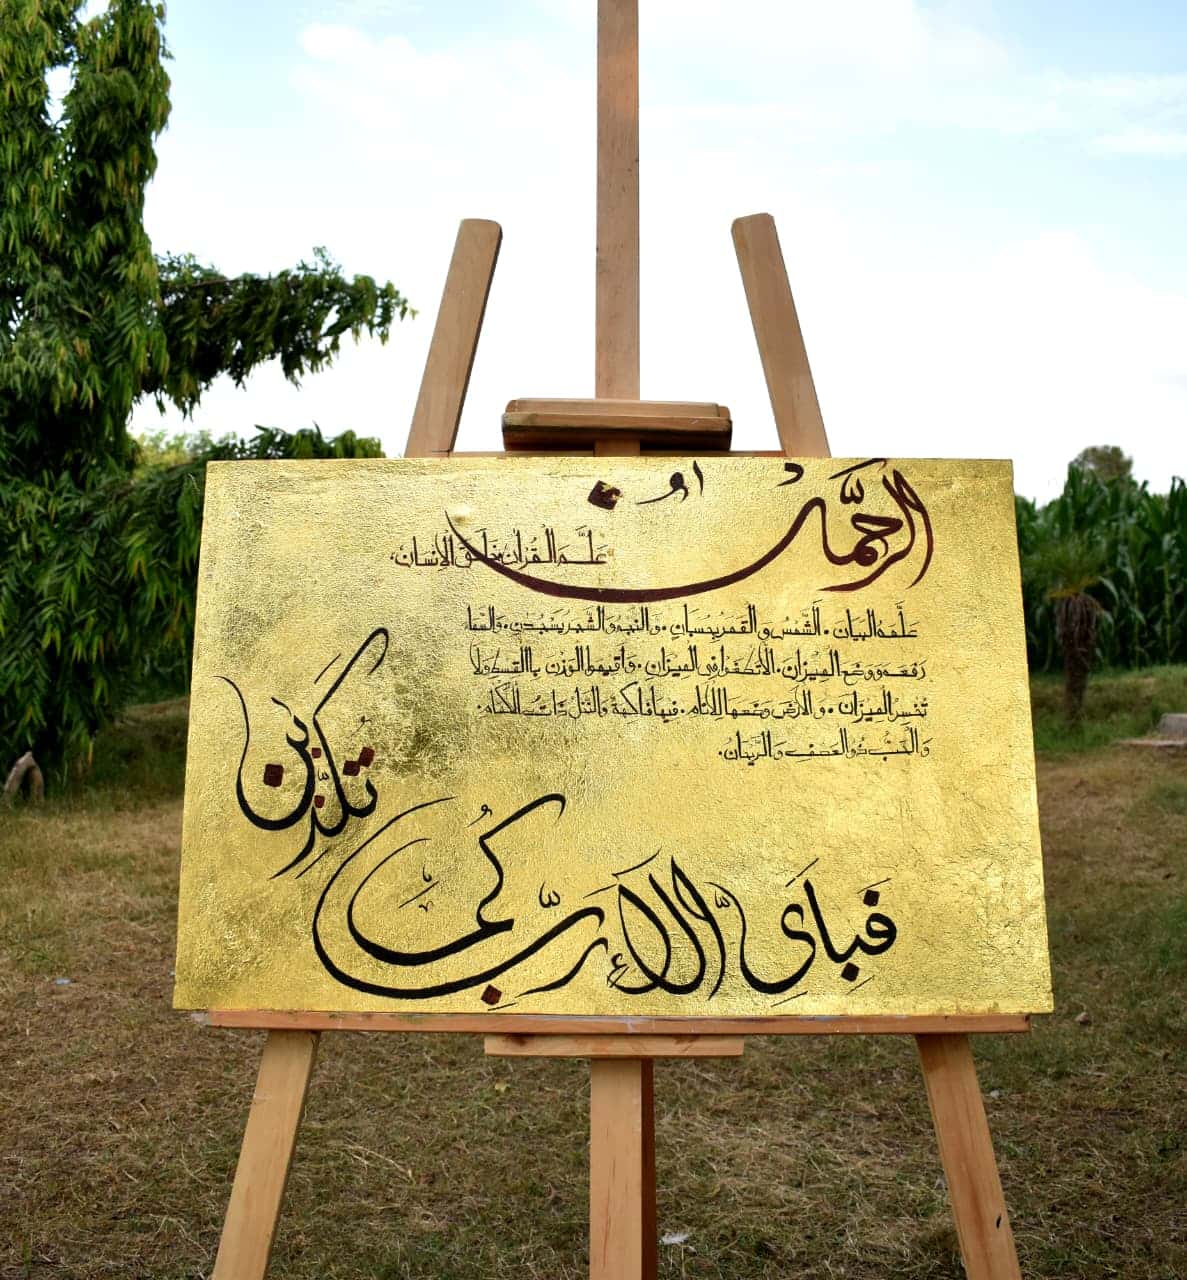 الرحمٰن
عَلَّمَ القُرانَ خَلَقَ الاِنسانَ،
عَلَّمَهُ البَيان • اَلشَّمْسُ والقَمَرُ بِحُسبانٍ • والنَّجمُ والشَّجَرُ يَسْجُدٰنِ • والسَّمَا
رَفَعَهَ ووَضَعَ المِيزانَ • الاتَطغَوا فِى المِيزانِ • واَقِيمُوا الوَزنَ باالقسط ولا
تُخسِرُ المِيزانَ • والارضَ وضعها لِلانام • فيها فاكهة والنخل ذاتُ الاكمام •
والحَبُّ ذُو العَصفِ والرَّيحانُ •
فَبِاَىِّ اٰلَاۤءِ رَبِّكُمَا
تُكَذِّبٰنِ